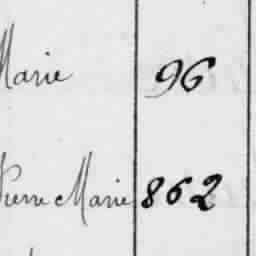 Marie 96
Pierre Marie 862